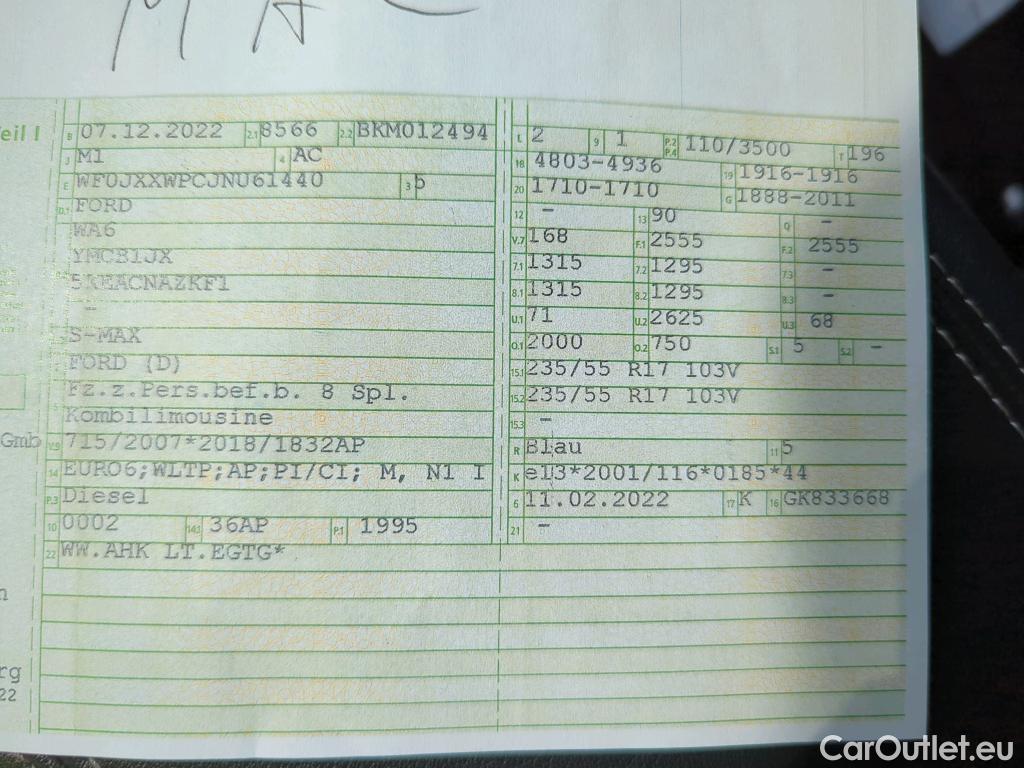 Teil I
B 07.12.2022 2.1 8566 2.2 BKM012494
J M1 4 AC
E WF0JXXWPCJNU61440 3 5
D.1 FORD
WA6
YMCB1JX
-
S-MAX
FORD (D)
Fz.z.Pers.bef.b. 8 Spl.
Kombilimousine
GmbH
V.9 715/2007*2018/1832AP
14 EURO6;WLTP;AP;PI/CI; M, N1 I
P.3 Diesel
10 0002 14.1 36AP P.1 1995
22 WW.AHK LT.EGTG*
L 2 9 1 P.2 P.4 110/3500 T 196
18 4803-4936 19 1916-1916
20 1710-1710 G 1888-2011
12 - 13 90 Q -
V.7 168 F.1 2555 F.2 2555
7.1 1315 7.2 1295 7.3 -
8.1 1315 8.2 1295 8.3 -
U.1 71 U.2 2625 U.3 68
O.1 2000 O.2 750 S.1 5 S.2 -
15.1 235/55 R17 103V
15.2 235/55 R17 103V
15.3 -
R Blau 11 5
K e13*2001/116*0185*44
6 11.02.2022 17 K 16 GK833668
21 -
CarOutlet.eu